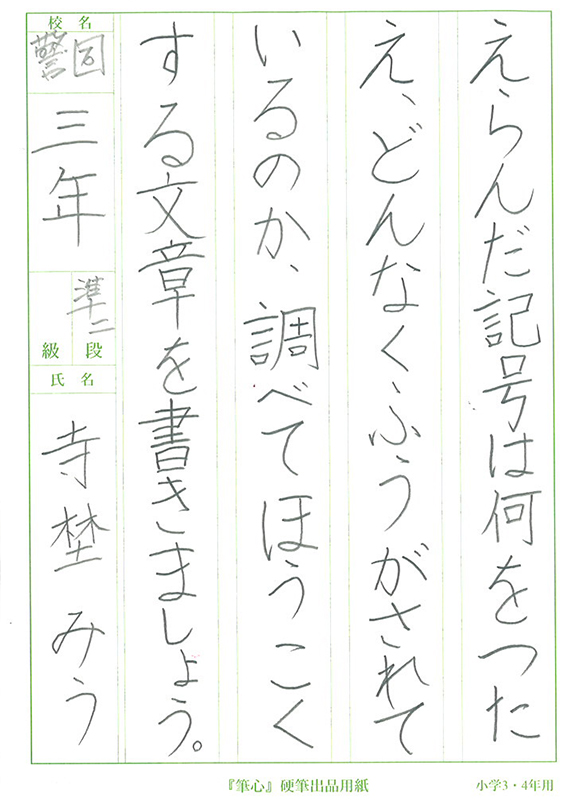 えらんだ記号は何をつた
え、どんなくふうがされて
いるのか、調べてほうこく
する文章を書きましょう。
校名
警固
三年
準二
段
級
氏名
寺埜 みう
『筆心』硬筆出品用紙
小学3・4年用